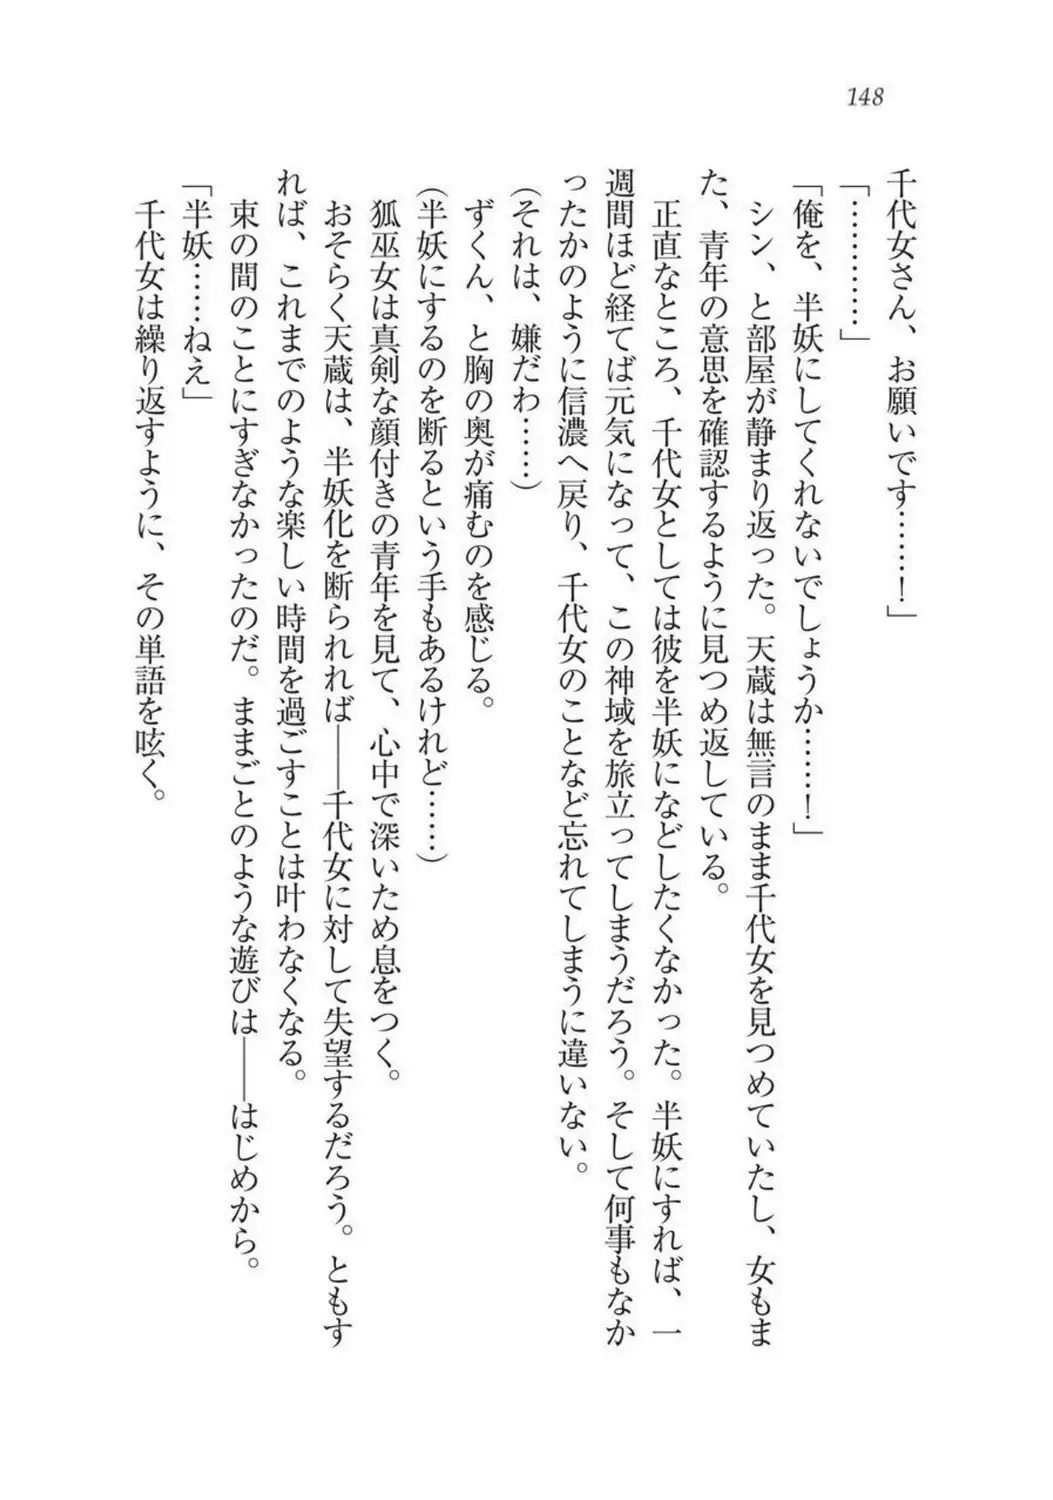 148
千代女さん、お願いです……！」
「…………」
「俺を、半妖にしてくれないでしょうか……！」
シン、と部屋が静まり返った。天蔵は無言のまま千代女を見つめていたし、女もま
た、青年の意思を確認するように見つめ返している。
正直なところ、千代女としては彼を半妖になどしたくなかった。半妖にすれば、一
週間ほど経てば元気になって、この神域を旅立ってしまうだろう。そして何事もなか
ったかのように信濃へ戻り、千代女のことなど忘れてしまうに違いない。
（それは、嫌だわ……）
ずくん、と胸の奥が痛むのを感じる。
（半妖にするのを断るという手もあるけれど……）
狐巫女は真剣な顔付きの青年を見て、心中で深いため息をつく。
おそらく天蔵は、半妖化を断られれば――千代女に対して失望するだろう。ともす
れば、これまでのような楽しい時間を過ごすことは叶わなくなる。
束の間のことにすぎなかったのだ。ままごとのような遊びは――はじめから。
「半妖……ねえ」
千代女は繰り返すように、その単語を呟く。